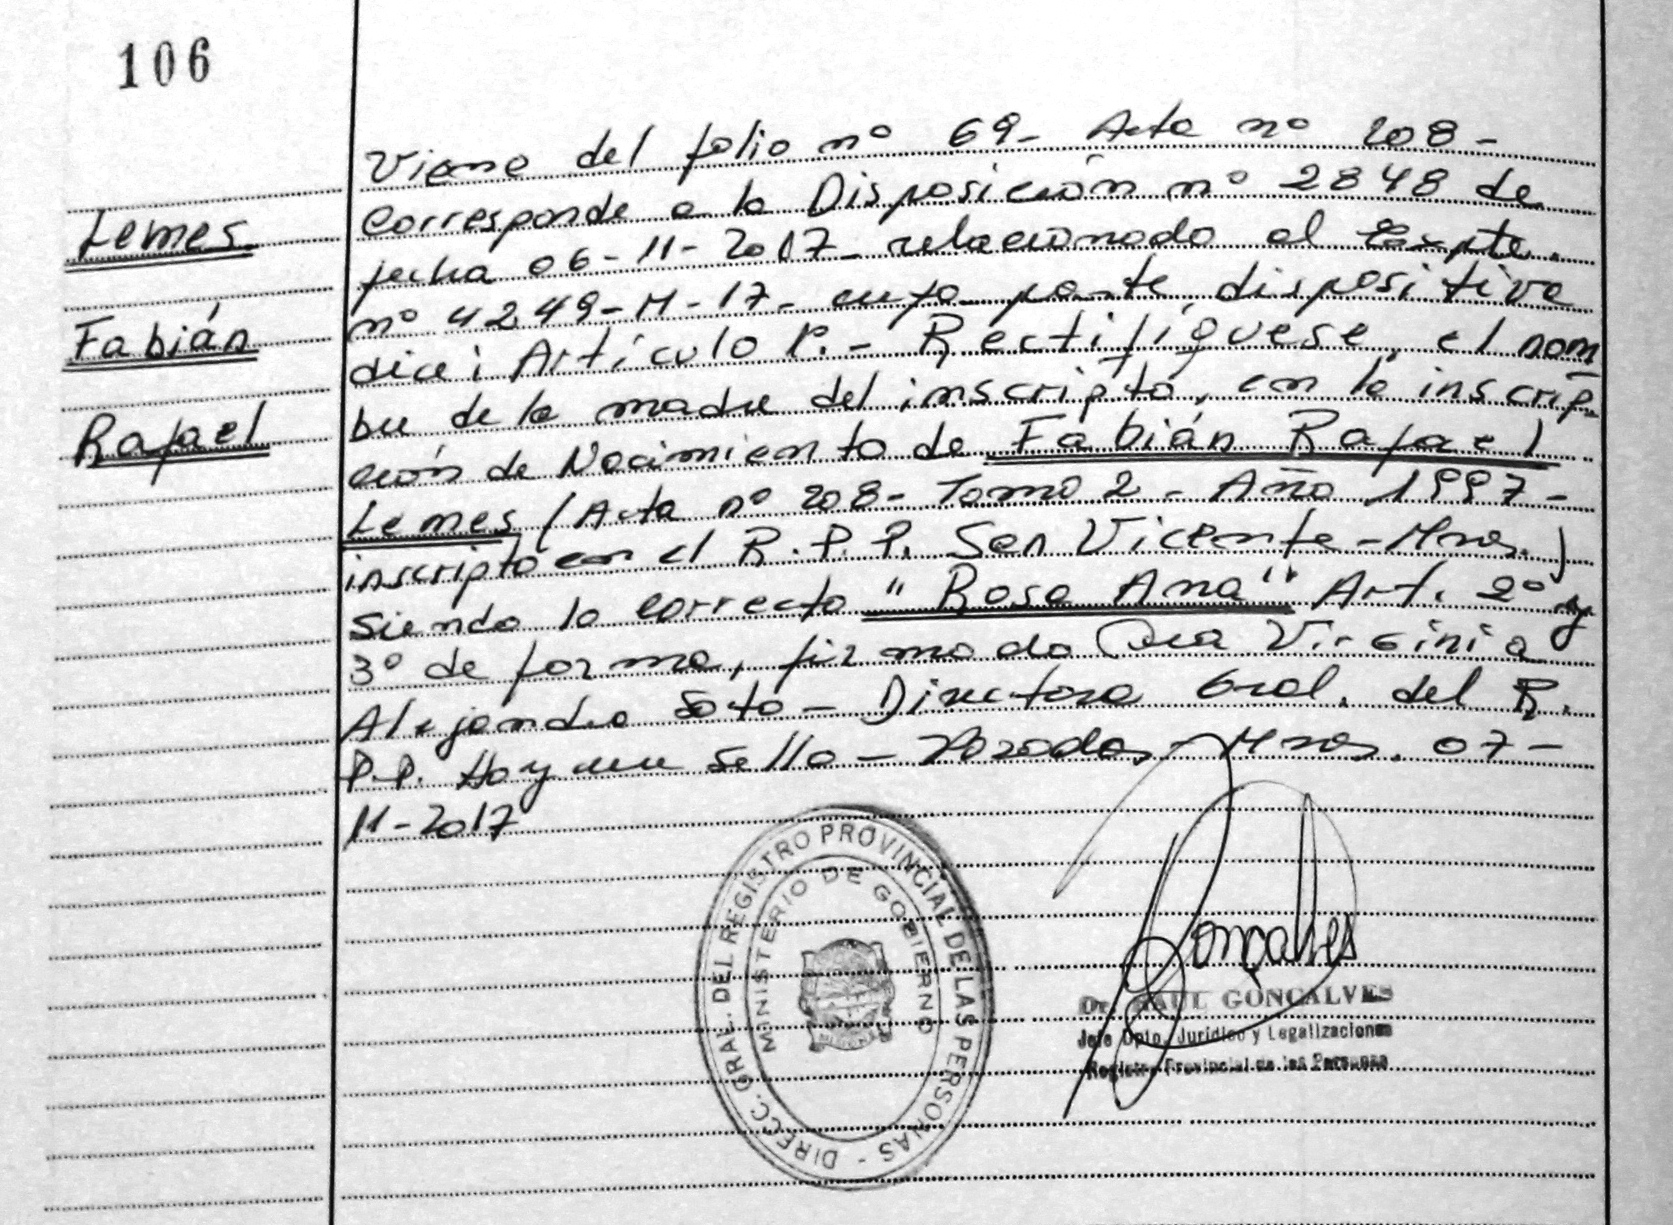 106
Lemes
Fabián
Rafael
Viene del folio nº 69- Acta nº 208-
Corresponde a la Disposición nº 2848 de
fecha 06-11-2017- relacionado al Expte.
nº 4249-M-17- cuya parte dispositiva
dice: Artículo 1º.- Rectifíquese, el nom
bre de la madre del inscripto, en la inscrip-
ción de Nacimiento de Fabián Rafael
Lemes (Acta nº 208- Tomo 2 - Año 1997-
inscripto en el R.P.P. San Vicente-Mnes.)
siendo lo correcto "Rosa Ana" Art. 2º y
3º de forma, firmado Dra Virginia
Alejandra Soto - Directora Gral. del R.
P.P. Hay un sello - Posadas, Mnes. 07-
11-2017
DIRECC. GRAL. DEL REGISTRO PROVINCIAL DE LAS PERSONAS -
MINISTERIO DE GOBIERNO
MISIONES
Goncalves
Dr. RAUL GONCALVES
Jefe Dpto. Jurídico y Legalizaciones
Registro Provincial de las Personas